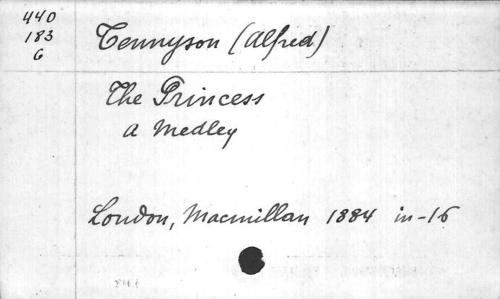 440
183
6
Tennyson (Alfred)
The Princess
a Medley
London, Macmillan 1884 in-16